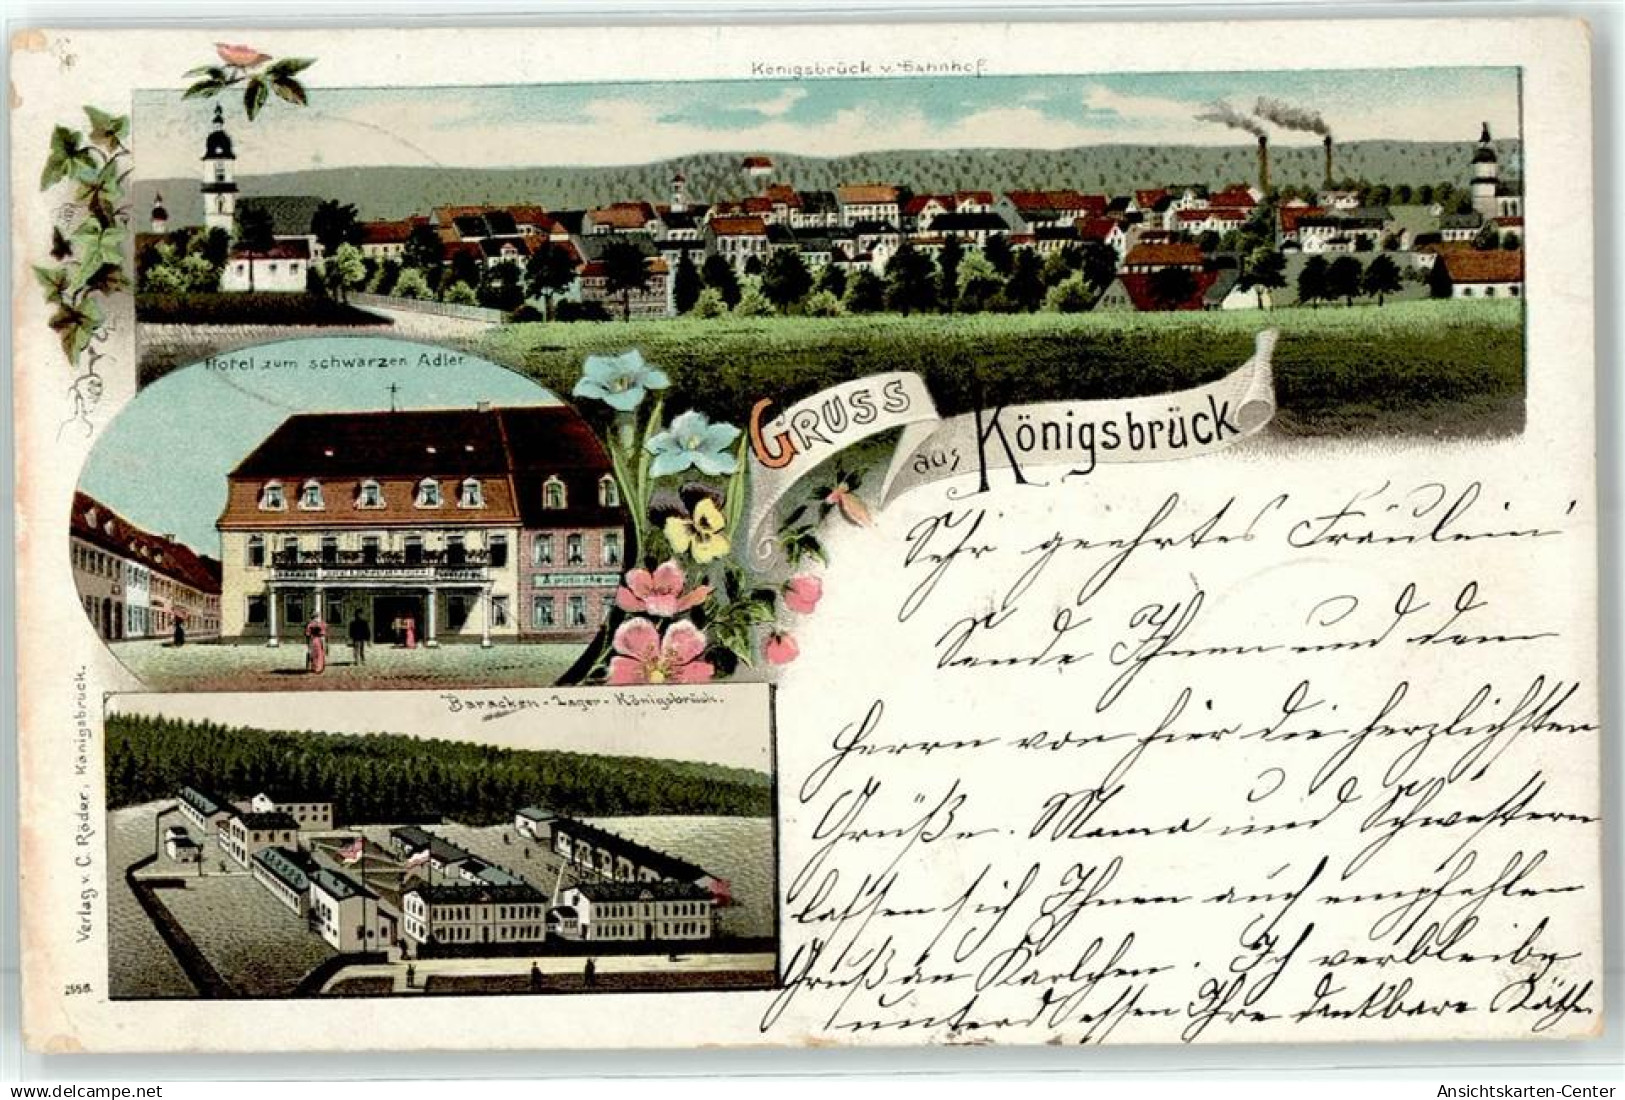 Königsbrück v. Bahnhof.
Hotel zum schwarzen Adler
GRUSS
aus Königsbrück
Baracken-Lager-Königsbrück.
Verlag v. C. Röder, Königsbrück.
Sehr geehrtes Fräulein!
Sende Ihnen und dem
Herrn von hier die herzlichsten
Grüße. Mama und Schwestern
lassen sich Ihnen auch empfehlen
Gruß an Karlchen. Ich verbleibe
unterdessen Ihre dankbare Käthe
www.delcampe.net
Ansichtskarten-Center